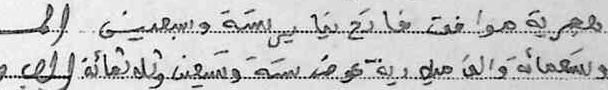 هجرية موافق فاتح يناير ستة وسبعين
وتسعمائة والف ميلادية عوض ستة وتسعين وثلاثمائة